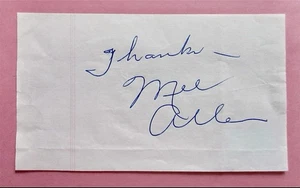 Thanks –
Mel
Allen